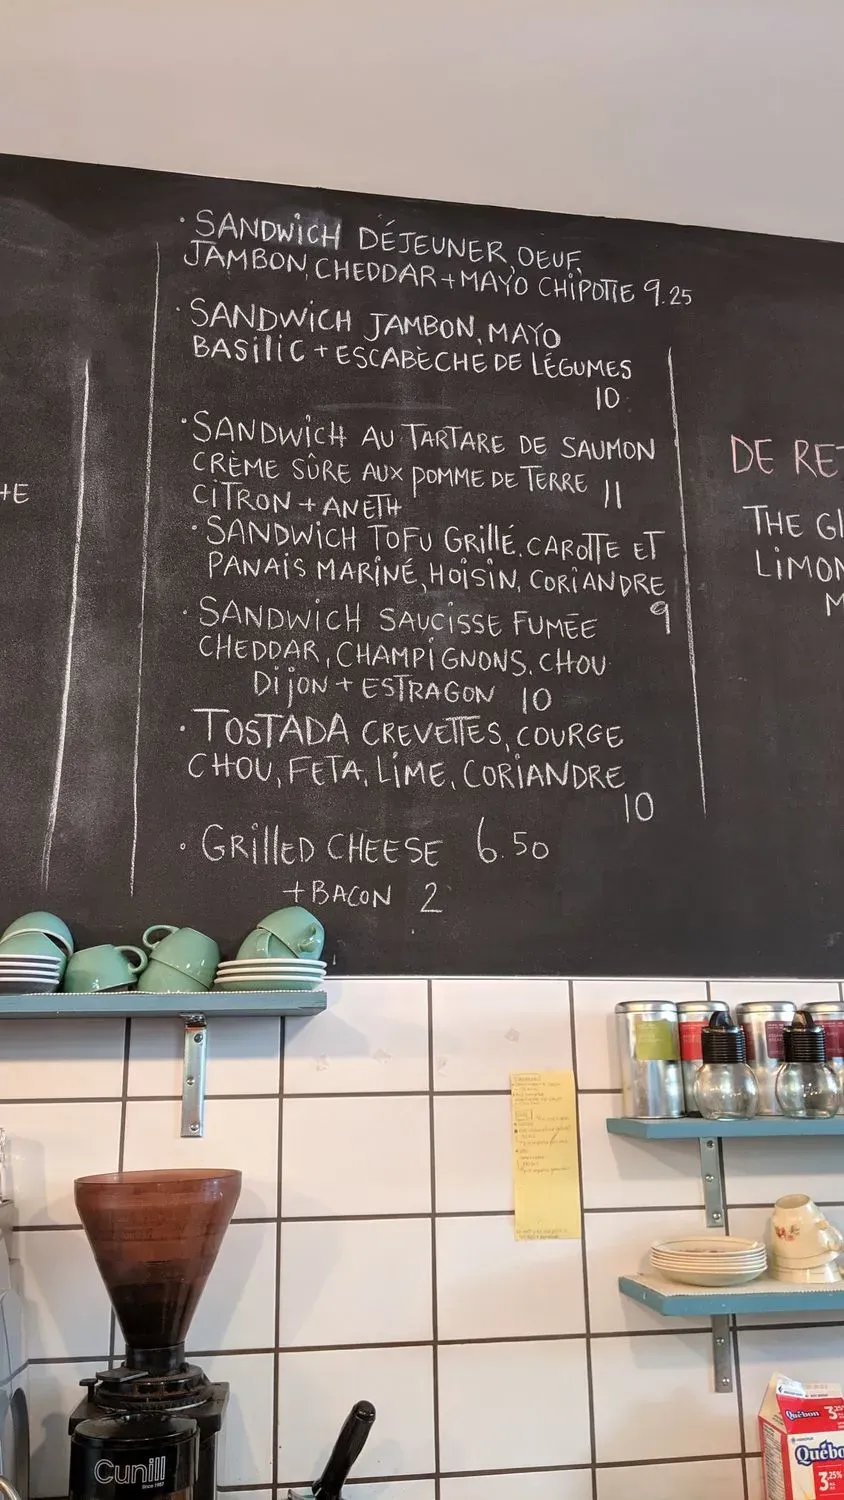 · SANDWICH DÉJEUNER, OEUF,
JAMBON, CHEDDAR + MAYO CHIPOTLE 9.25
· SANDWICH JAMBON, MAYO
BASILIC + ESCABÈCHE DE LÉGUMES
10
· SANDWICH AU TARTARE DE SAUMON
CRÈME SÛRE AUX POMME DE TERRE 11
CITRON + ANETH
· SANDWICH TOFU GRILLÉ, CAROTTE ET
PANAIS MARINÉ, HOISIN, CORIANDRE
9
· SANDWICH SAUCISSE FUMÉE
CHEDDAR, CHAMPIGNONS, CHOU
DIJON + ESTRAGON 10
· TOSTADA CREVETTES, COURGE
CHOU, FETA, LIME, CORIANDRE
10
· GRILLED CHEESE 6.50
+ BACON 2
+E
DE RET
THE GL
LIMON
M
Cunill
Since 1957
Québon 3.25%
Québo
3.25%